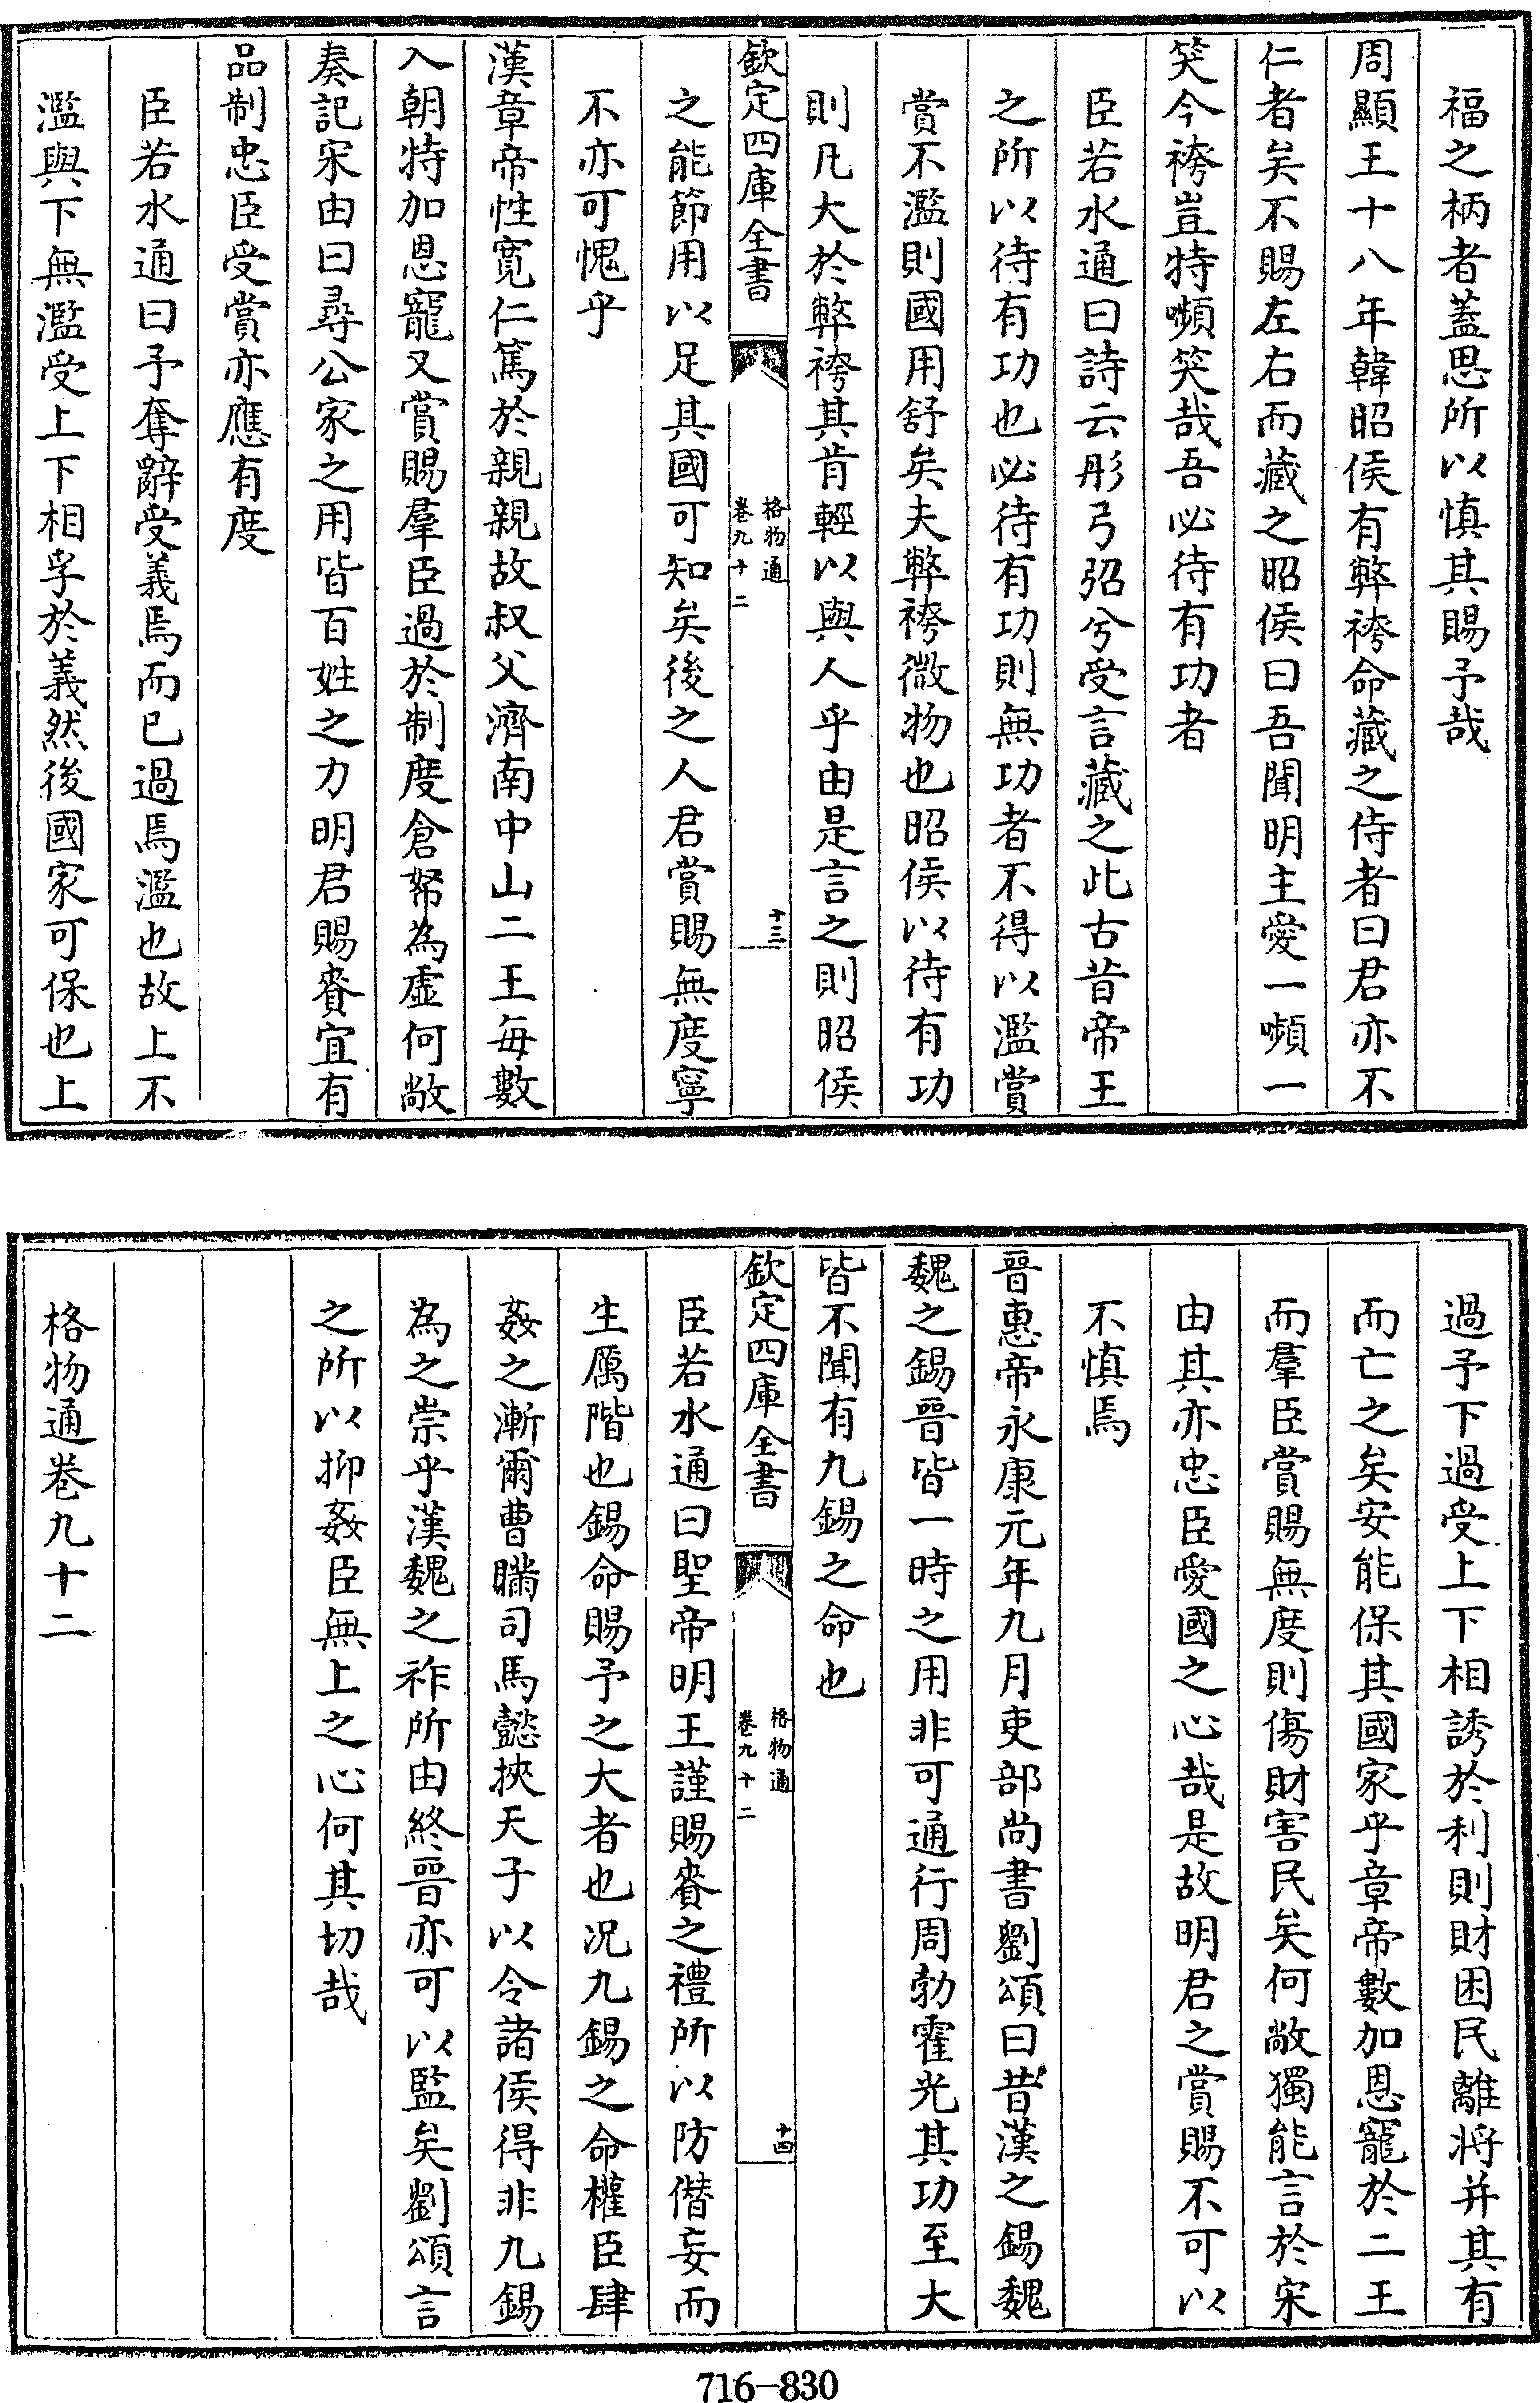 福之柄者蓋思所以慎其賜予哉
周顯王十八年韓昭侯有弊袴命藏之侍者曰君亦不
仁者矣不賜左右而藏之昭侯曰吾聞明主愛一嚬一
笑今袴豈特嚬笑哉吾必待有功者
臣若水通曰詩云彤弓弨兮受言藏之此古昔帝王
之所以待有功也必待有功則無功者不得以濫賞
賞不濫則國用舒矣夫弊袴微物也昭侯以待有功
則凡大於弊袴其肯輕以與人乎由是言之則昭侯
欽定四庫全書
格物通
卷九十二
十三
之能節用以足其國可知矣後之人君賞賜無度寧
不亦可愧乎
漢章帝性寛仁篤於親親故叔父濟南中山二王每數
入朝特加恩寵又賞賜羣臣過於制度倉帑為虛何敞
奏記宋由曰尋公家之用皆百姓之力明君賜賚宜有
品制忠臣受賞亦應有度
臣若水通曰予奪辭受義焉而已過焉濫也故上不
濫與下無濫受上下相孚於義然後國家可保也上
過予下過受上下相誘於利則財困民離將并其有
而亡之矣安能保其國家乎章帝數加恩寵於二王
而羣臣賞賜無度則傷財害民矣何敞獨能言於宋
由其亦忠臣愛國之心哉是故明君之賞賜不可以
不慎焉
晉惠帝永康元年九月吏部尚書劉頌曰昔漢之錫魏
魏之錫晉皆一時之用非可通行周勃霍光其功至大
皆不聞有九錫之命也
欽定四庫全書
格物通
卷九十二
十四
臣若水通曰聖帝明王謹賜賚之禮所以防僭妄而
生厲階也錫命賜予之大者也况九錫之命權臣肆
姦之漸爾曹瞞司馬懿挾天子以令諸侯得非九錫
為之祟乎漢魏之祚所由終晉亦可以監矣劉頌言
之所以抑姦臣無上之心何其切哉
格物通卷九十二
716-830